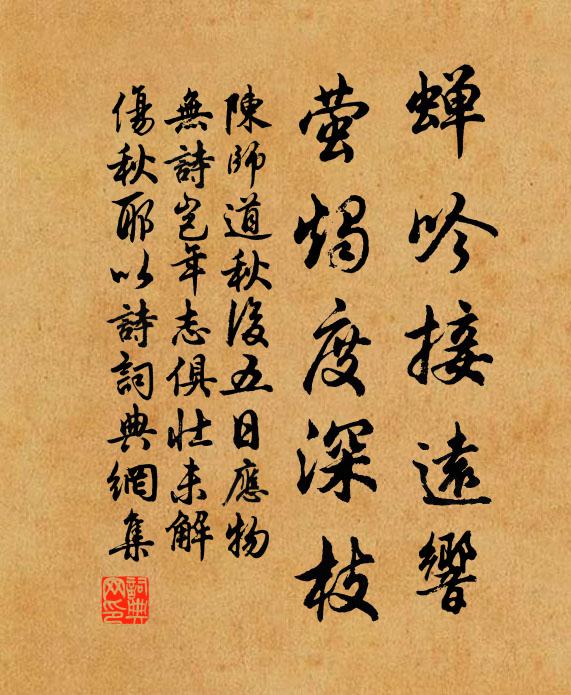 蝉吟接遠響
萤燭度深枝
陳師道秋後五日應物
無詩岂年志俱壮未解
傷秋耶以詩詞典網集
詞典
网印